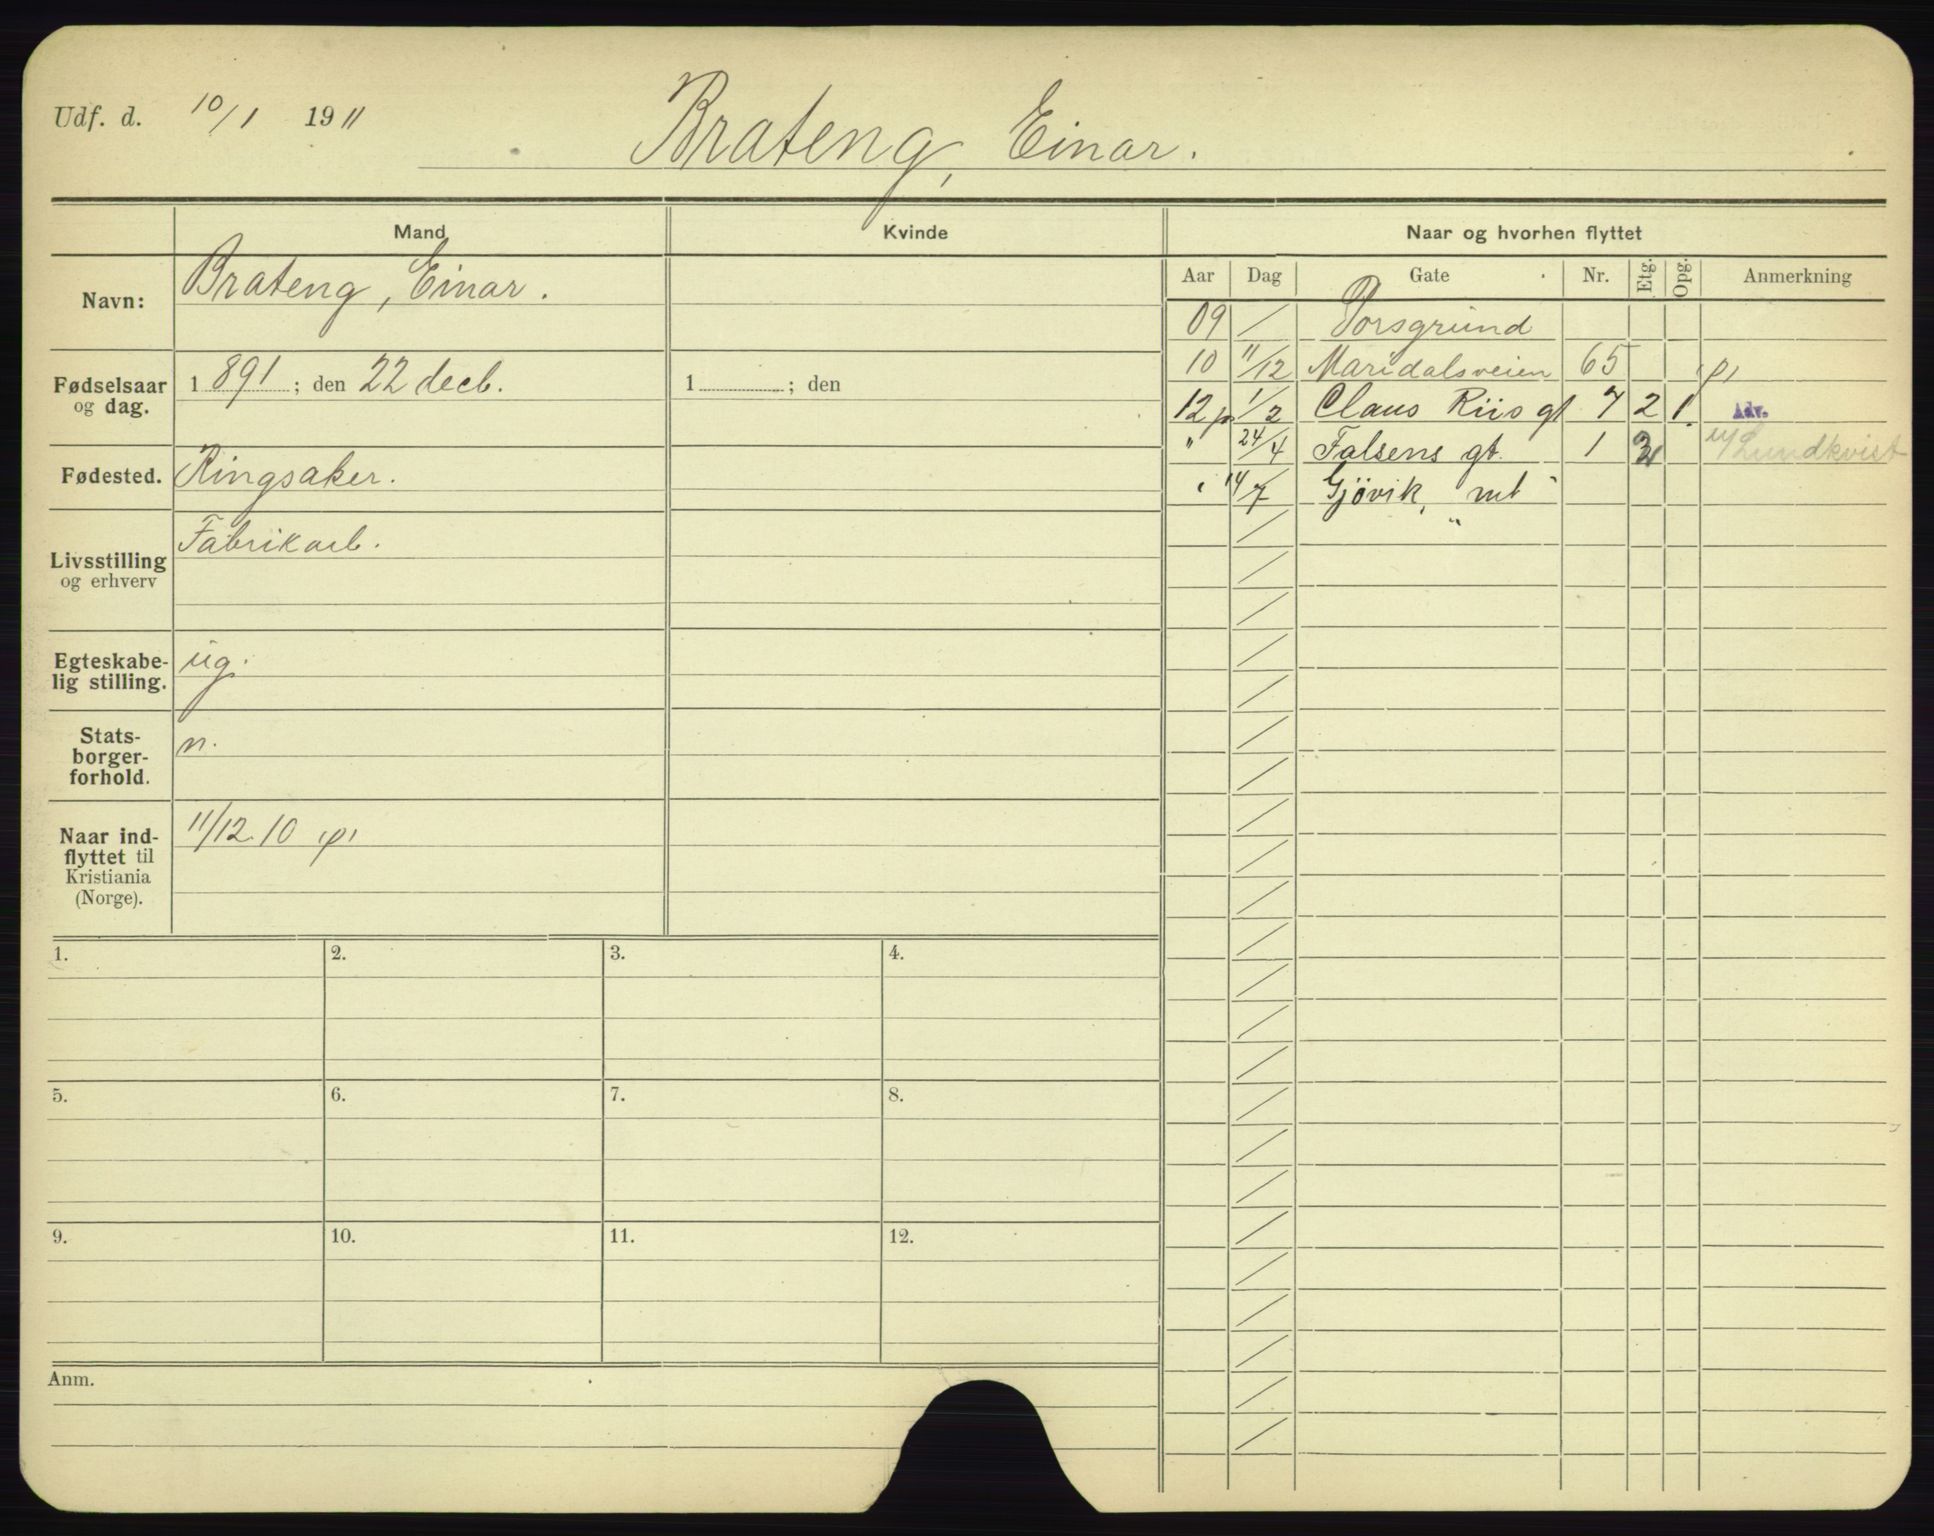 Udf. d. 10/1 1911 Brateng, Einar.
Mand Kvinde Naar og hvorhen flyttet
Aar Dag Gate Nr. Etg. Opg. Anmerkning
Navn: Brateng, Einar.
Fødselsaar og dag. 1891; den 22 decb. 1 ; den
Fødested. Ringsaker.
Livsstilling og erhverv Fabrikarb.
Egteskabe-
lig stilling. ug.
Stats-
borger-
forhold. n.
Naar ind-
flyttet til
Kristiania
(Norge). 11/12 10 ipi
09 / Porsgrund
10 11/12 Maridalsveien 65 ipi
12 p 1/2 Claus Riis gt 7 2 1 Adv.
" 24/4 Falsens gt. 1 Lundkvist
" 14/7 Gjövik,
1. 2. 3. 4.
5. 6. 7. 8.
9. 10. 11. 12.
Anm.